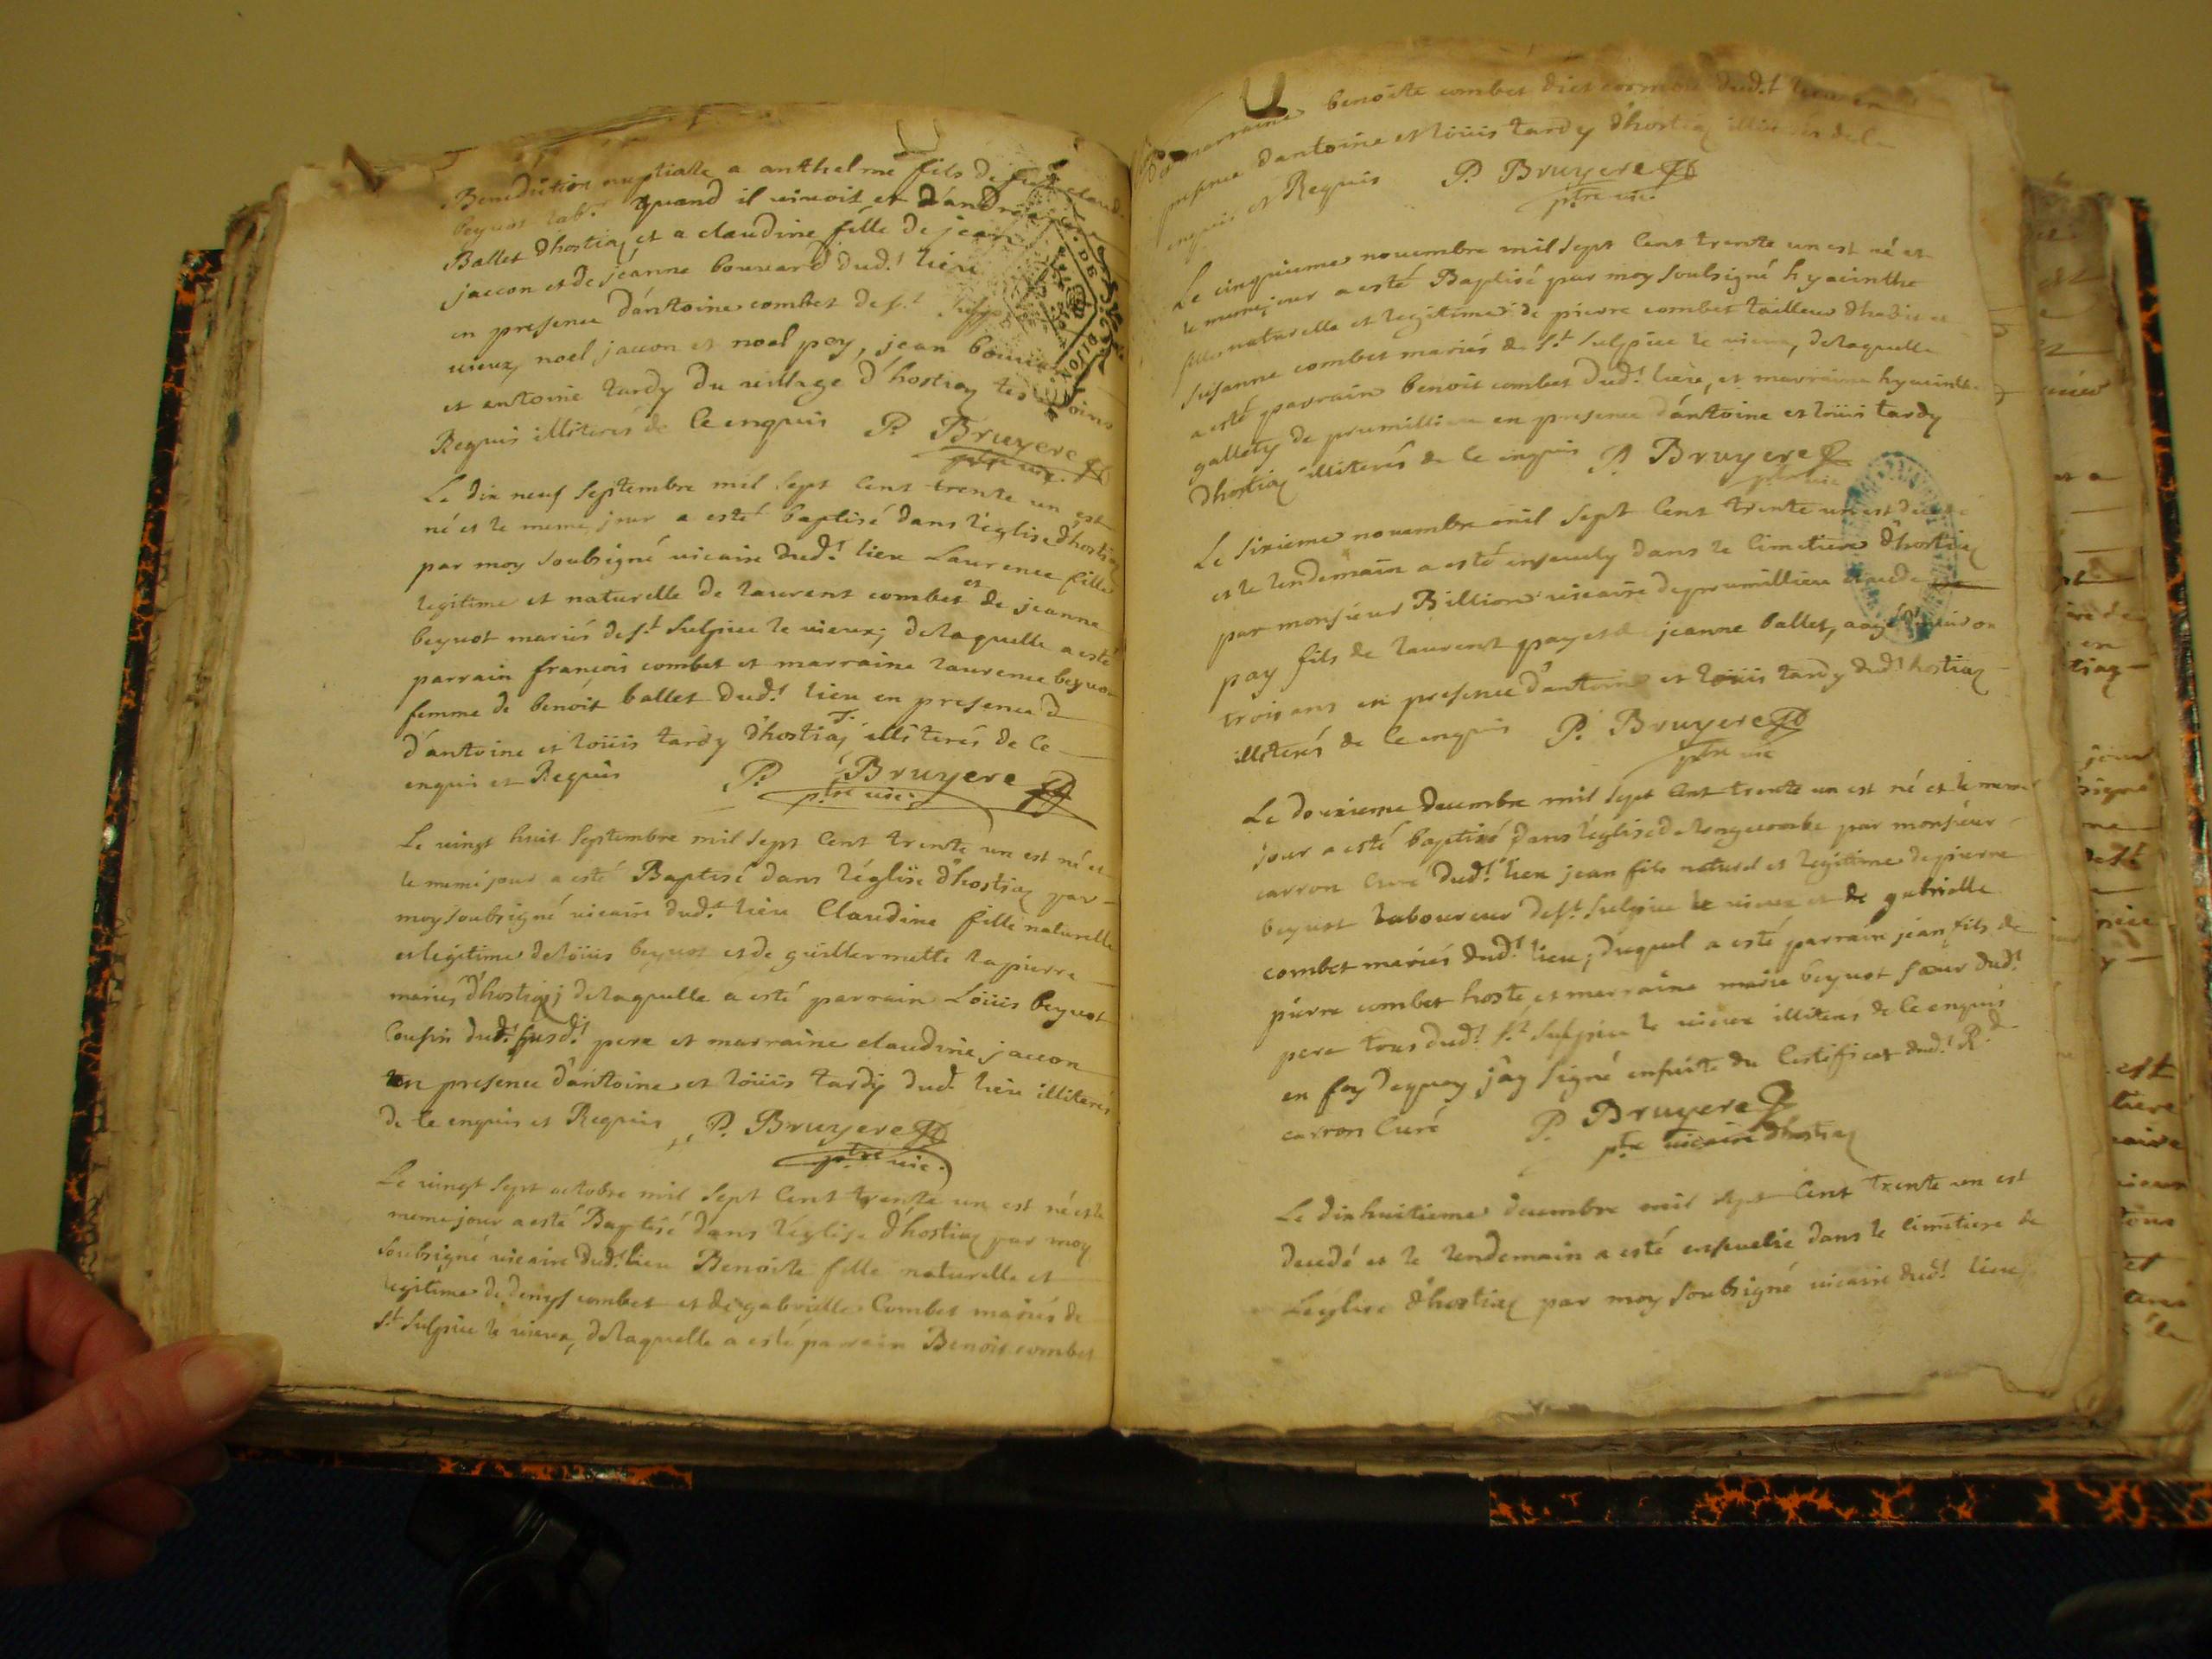 Benediction nuptiale a anthelme fils de feu claude
beyuot lab.r quand il vivoit et d'andrea
Ballet d'hostiaz et a claudine fille de jean
jaccon et de jeanne bouvard dud.t lieu
en presence d'antoine combet de s.t
vieux, noel jaccon et noel pey, jean
et antoine tardy du village d'hostiaz tesmoins
Requis illiterés de ce enquis P. Bruyere
ptre vic.
Le dix neuf septembre mil sept cent trente un est
né et le meme jour a esté baptisé dans l'église d'hostiaz
par moy soubsigné vicaire dud.t lieu Laurence fille
legitime et naturelle de laurent combet et de jeanne
beyuot mariés de s.t sulpice le vieux; de laquelle a esté
parrain francois combet et marraine laurence beyuot
femme de benoit ballet dud.t lieu en presence d
d'antoine et loüis tardy d'hostiaz illiterés de ce
enquis et Requis P. Bruyere
ptre vic.
Le vingt huit septembre mil sept cent trente un est né et
le meme jour a esté Baptisé dans l'églïse d'hostiaz par
moy soubsigné vicaire dud.t lieu Claudine fille naturelle
et legitime de loüis beyuot et de guillermette lapierre
mariés d'hostiaz; de laquelle a esté parrain Loüis beyuot
Cousin dud.t susd.t pere et marraine claudine jaccon
en presence d'antoine et loüis tardy dud. lieu illiterés
de ce enquis et Requis P. Bruyere
ptre vic.
Le vingt sept octobre mil sept cent trente un est né et le
meme jour a esté Baptisé dans l'église d'hostiaz par moy
soubsigné vicaire dud.t lieu Benoite fille naturelle et
legitime de denys combet et de gabrielle Combet mariés de
s.t sulpice le vieux, de laquelle a esté parrain Benoit combet
marraine benoite combet dict dud.t lieu en
presence d'antoine et loüis tardy d'hostiaz illiterés de ce
enquis et Requis P. Bruyere
ptre vic.
Le cinquieme novembre mil sept Cent trente un est né et
le meme jour a esté Baptisé par moy soubsigné hyacinthe
fille naturelle et legitime de pierre combet tailleur d'habit et
susanne combet mariés de s.t sulpice le vieux, de laquelle
a esté parrain benoit combet dud.t lieu, et marraine hyacinthe
gallety de prumillieu en presence d'antoine et loüis tardy
d'hostiaz illiterés de ce enquis P. Bruyere
ptre vic
Le sixieme novembre mil sept Cent trente un est decedé
et le lendemain a esté ensevely dans le cimetiere d'hostiaz
par monsieur Billion vicaire de prumillieu
pay fils de laurent pay et de jeanne ballet, aagé d'environ
trois ans en presence d'antoine et loüis tardy dud.t hostiaz
illiterés de ce enquis P. Bruyere
ptre vic
Le douxieme decembre mil sept cent trente un est né et le meme
jour a esté baptisé dans l'église de longecombe par monsieur
carron curé dud.t lieu jean fils naturel et legitime de pierre
beyuot laboureur de s.t sulpice le vieux et de gabrielle
combet mariés dud.t lieu; duquel a esté parrain jean fils de
pierre combet hoste, et marraine marie beyuot soeur dud.t
pere tous dud.t s.t sulpice le vieux illiteres de ce enquis
en foy de quoy j'ay signé ensuite du Certificat dud.t R.d
carron Curé P. Bruyere
ptre vicaire d'hostiaz
Le dixhuitieme decembre mil sept Cent trente un est
decedé et le lendemain a esté ensevelie dans le cimetiere de
L'eglise d'hostiaz par moy soubsigné vicaire dud.t lieu